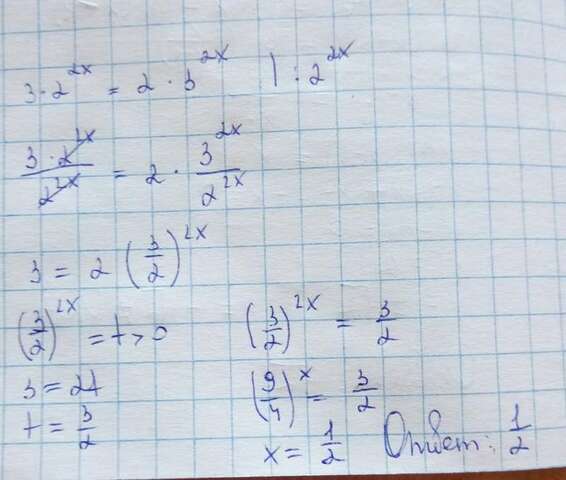 3·2^{2x} = 2·3^{2x} | : 2^{2x}
\frac{3·2^{2x}}{2^{2x}} = 2·\frac{3^{2x}}{2^{2x}}
3 = 2(\frac{3}{2})^{2x}
(\frac{3}{2})^{2x} = t > 0
3 = 2t
t = \frac{3}{2}
(\frac{3}{2})^{2x} = \frac{3}{2}
(\frac{9}{4})^{x} = \frac{3}{2}
x = \frac{1}{2}
Ответ: \frac{1}{2}